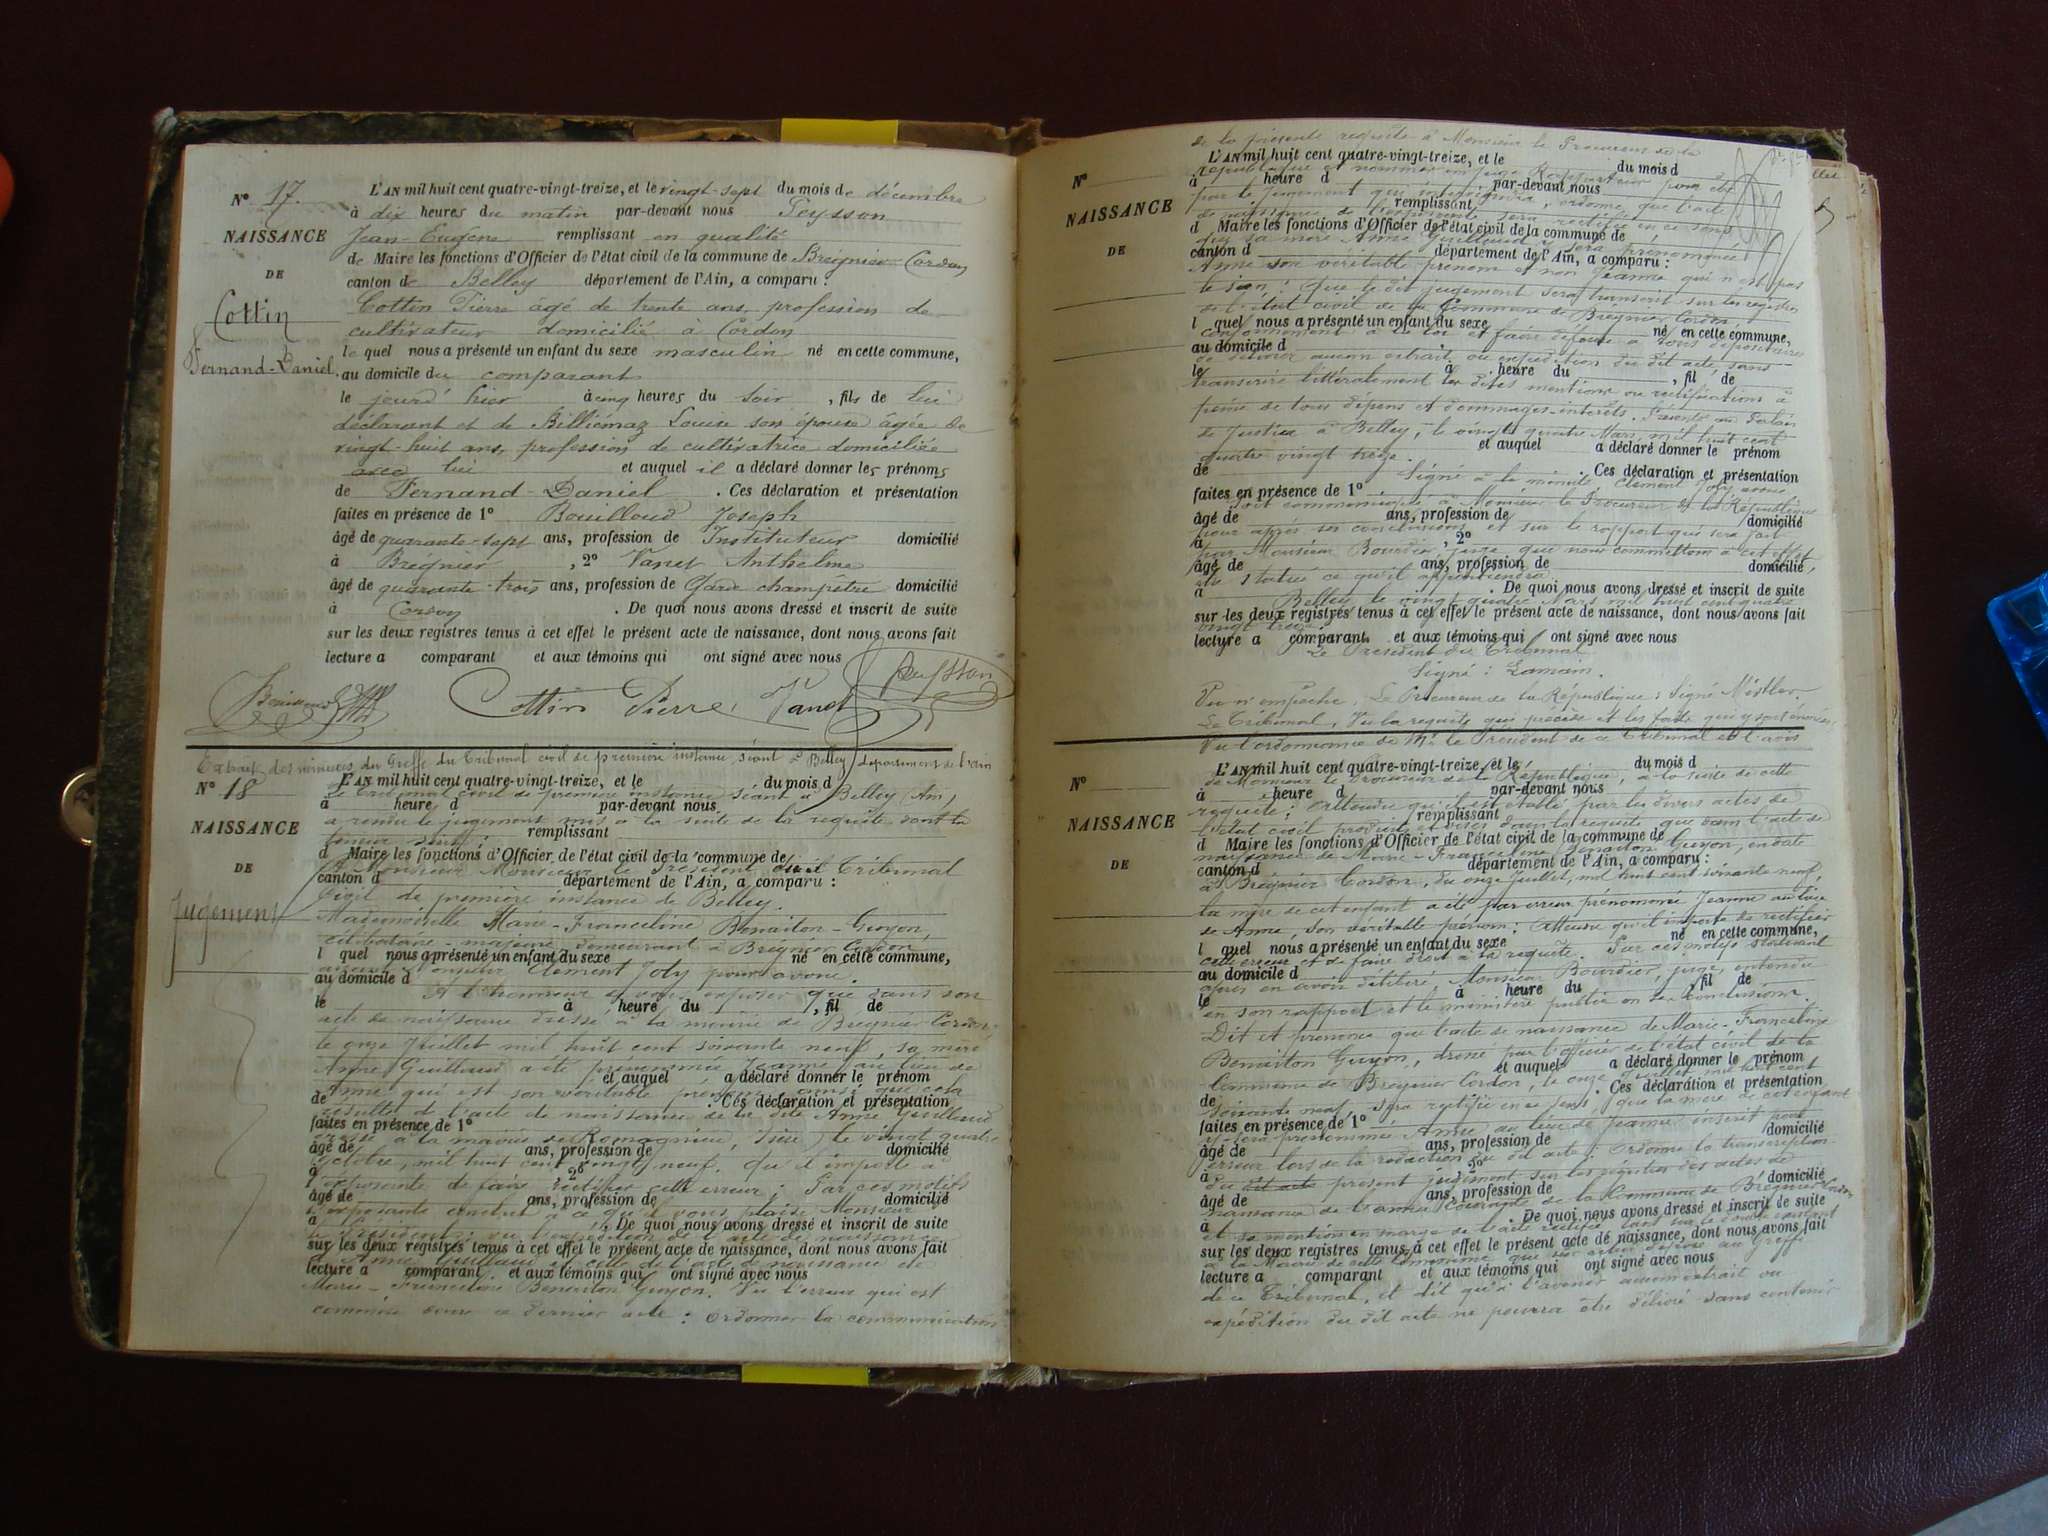 N° 17.
NAISSANCE
DE
Cottin
Fernand-Daniel.
L'AN mil huit cent quatre-vingt-treize, et le vingt-sept du mois de décembre
à dix heures du matin par-devant nous Peysson
Jean-Eugène remplissant en qualité
de Maire les fonctions d'Officier de l'état civil de la commune de Brégnier-Cordon
canton de Belley département de l'Ain, a comparu :
Cottin Pierre âgé de trente ans, profession de
cultivateur domicilié à Cordon
lequel nous a présenté un enfant du sexe masculin né en cette commune,
au domicile du comparant
le jour d'hier à cinq heures du soir, fils de lui
déclarant et de Billiémaz Louise son épouse âgée de
vingt-huit ans, profession de cultivatrice domiciliée
avec lui et auquel il a déclaré donner les prénoms
de Fernand-Daniel. Ces déclaration et présentation
faites en présence de 1° Bouilloud Joseph
âgé de quarante-sept ans, profession de Instituteur domicilié
à Brégnier, 2° Vanet Anthelme
âgé de quarante-trois ans, profession de Garde champêtre domicilié
à Cordon. De quoi nous avons dressé et inscrit de suite
sur les deux registres tenus à cet effet le présent acte de naissance, dont nous avons fait
lecture a comparant et aux témoins qui ont signé avec nous
Cottin Pierre Vanet Peysson
Extrait des minutes du Greffe du Tribunal civil de première instance séant à Belley département de l'ain
N° 18
NAISSANCE
DE
Jugement
L'AN mil huit cent quatre-vingt-treize, et le du mois d
Le Tribunal civil de première instance séant à Belley (Ain)
à heure d par-devant nous
a rendu le jugement mis à la suite de la requête dont la
teneur suit : remplissant
d Maire les fonctions d'Officier de l'état civil de la commune de
Monsieur le Président du Tribunal
canton d département de l'Ain, a comparu :
Civil de première instance de Belley.
Mademoiselle Marie-Franceline Benaiton-Guyon,
célibataire majeure demeurant à Brégnier Cordon
l quel nous a présenté un enfant du sexe né en cette commune,
ayant Monsieur Clément Joly pour avoué.
au domicile d
A l'honneur de vous exposer que dans son
le à heure du , fil de
acte de naissance dressé à la mairie de Brégnier Cordon,
le onze Juillet mil huit cent soixante neuf, sa mère
Anne Guillaud a été prénommée Jeanne au lieu de
et auquel a déclaré donner le prénom
Anne qui est son véritable prénom
de . Ces déclaration et présentation
résulte de l'acte de naissance de la dite Anne Guillaud
faites en présence de 1°
dressé à la mairie de Romagnieu, Isère, le vingt quatre
âgé de ans, profession de domicilié
octobre, mil huit cent vingt neuf. Qu'il importe à
à , 2°
l'exposante de faire rectifier cette erreur ; Par ces motifs
âgé de ans, profession de domicilié
l'exposante conclut à ce qu'il vous plaise Monsieur
à . De quoi nous avons dressé et inscrit de suite
sur les deux registres tenus à cet effet le présent acte de naissance, dont nous avons fait
Anne Guillaud et celle de l'acte de naissance de
lecture a comparant et aux témoins qui ont signé avec nous
Marie-Franceline Benaiton Guyon. Vu l'erreur qui est
commise dans ce dernier acte : ordonner la communication
de la présente requête à Monsieur le Procureur de la
N°
NAISSANCE
DE
L'AN mil huit cent quatre-vingt-treize, et le du mois d
République et nommer un juge Rapporteur pour être
à heure d par-devant nous
par le jugement qui interviendra, ordonné que l'acte
remplissant
de naissance de l'exposante sera rectifié en ce sens
d Maire les fonctions d'Officier de l'état civil de la commune de
que sa mère Anne Guillaud y sera prénommée
canton d département de l'Ain, a comparu :
Anne son véritable prénom et non Jeanne qui n'est pas
le sien ; Que le dit jugement sera transcrit sur les registres
de l'état civil de la Commune de Brégnier Cordon
l quel nous a présenté un enfant du sexe né en cette commune,
conformément à la loi et faire défense à tous dépositaires
au domicile d
de délivrer aucun extrait ou expédition du dit acte, sans
le à heure du , fil de
transcrire littéralement les dites mentions ou rectifications à
peine de tous dépens et dommages-intérêts. Présenté au Palais
de Justice à Belley, le vingt quatre Mars mil huit cent
et auquel a déclaré donner le prénom
quatre vingt treize.
de . Ces déclaration et présentation
Signé à la minute : Clément Joly avoué
faites en présence de 1°
Soit communiqué à Monsieur le Procureur de la République
âgé de ans, profession de domicilié
pour après ses conclusions et sur le rapport qui sera fait
à , 2°
par Monsieur Bourdier, juge que nous commettons à cet effet
âgé de ans, profession de domicilié
être statué ce qu'il appartiendra.
à . De quoi nous avons dressé et inscrit de suite
Belley le vingt quatre Mars mil huit cent quatre
sur les deux registres tenus à cet effet le présent acte de naissance, dont nous avons fait
vingt treize.
lecture a comparant et aux témoins qui ont signé avec nous
Le Président du Tribunal
Signé : Lamain.
Vu n'empêche. Le Procureur de la République : Signé
Le Tribunal, Vu la requête qui précède et les faits qui y sont énoncés,
Vu l'ordonnance de Mr le Président de ce Tribunal et l'avis
N°
NAISSANCE
DE
L'AN mil huit cent quatre-vingt-treize, et le du mois d
de Monsieur le Procureur de la République, à la suite de cette
à heure d par-devant nous
requête ; Attendu qu'il est établi par les divers actes de
remplissant
l'état civil produits et visés dans la requête que dans l'acte de
d Maire les fonctions d'Officier de l'état civil de la commune de
naissance de Marie-Franceline Benaiton Guyon, en date
canton d département de l'Ain, a comparu :
à Brégnier Cordon, du onze Juillet, mil huit cent soixante neuf,
la mère de cet enfant a été par erreur prénommée Jeanne au lieu
de Anne, son véritable prénom ; Attendu qu'il importe de rectifier
l quel nous a présenté un enfant du sexe né en cette commune,
cette erreur et de faire droit à la requête. Par ces motifs statuant
au domicile d
après en avoir délibéré, Monsieur Bourdier, juge, entendu
le à heure du , fil de
en son rapport et le ministère public en ses conclusions.
Dit et prononce que l'acte de naissance de Marie-Franceline
Benaiton Guyon, dressé par l'officier de l'état civil de la
et auquel a déclaré donner le prénom
Commune de Brégnier Cordon, le onze Juillet mil huit cent
de . Ces déclaration et présentation
soixante neuf sera rectifié en ce sens, que la mère de cet enfant
faites en présence de 1°
y sera prénommée Anne au lieu de Jeanne inscrit pour
âgé de ans, profession de domicilié
erreur lors de la rédaction du dit acte ; Ordonne la transcription
à , 2°
du dit acte présent jugement sur les registres des actes de
âgé de ans, profession de domicilié
naissance de l'année courante de la Commune de Brégnier Cordon
à . De quoi nous avons dressé et inscrit de suite
et sa mention en marge de l'acte rectifié
sur les deux registres tenus à cet effet le présent acte de naissance, dont nous avons fait
à la Mairie de cette Commune que sur celui déposé au Greffe
lecture a comparant et aux témoins qui ont signé avec nous
de ce Tribunal, et dit qu'à l'avenir aucun extrait ou
expédition du dit acte ne pourra être délivré sans contenir